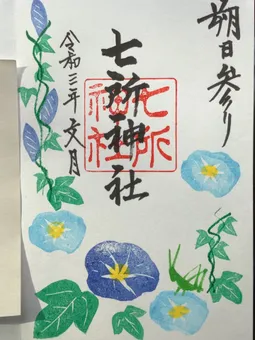 朔日参り
七所神社
七所神社
令和三年文月